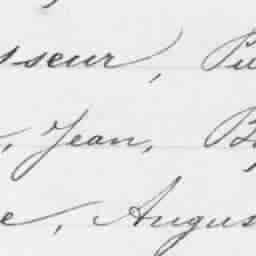 sseur, Pi
, Jean, B
e, Augus